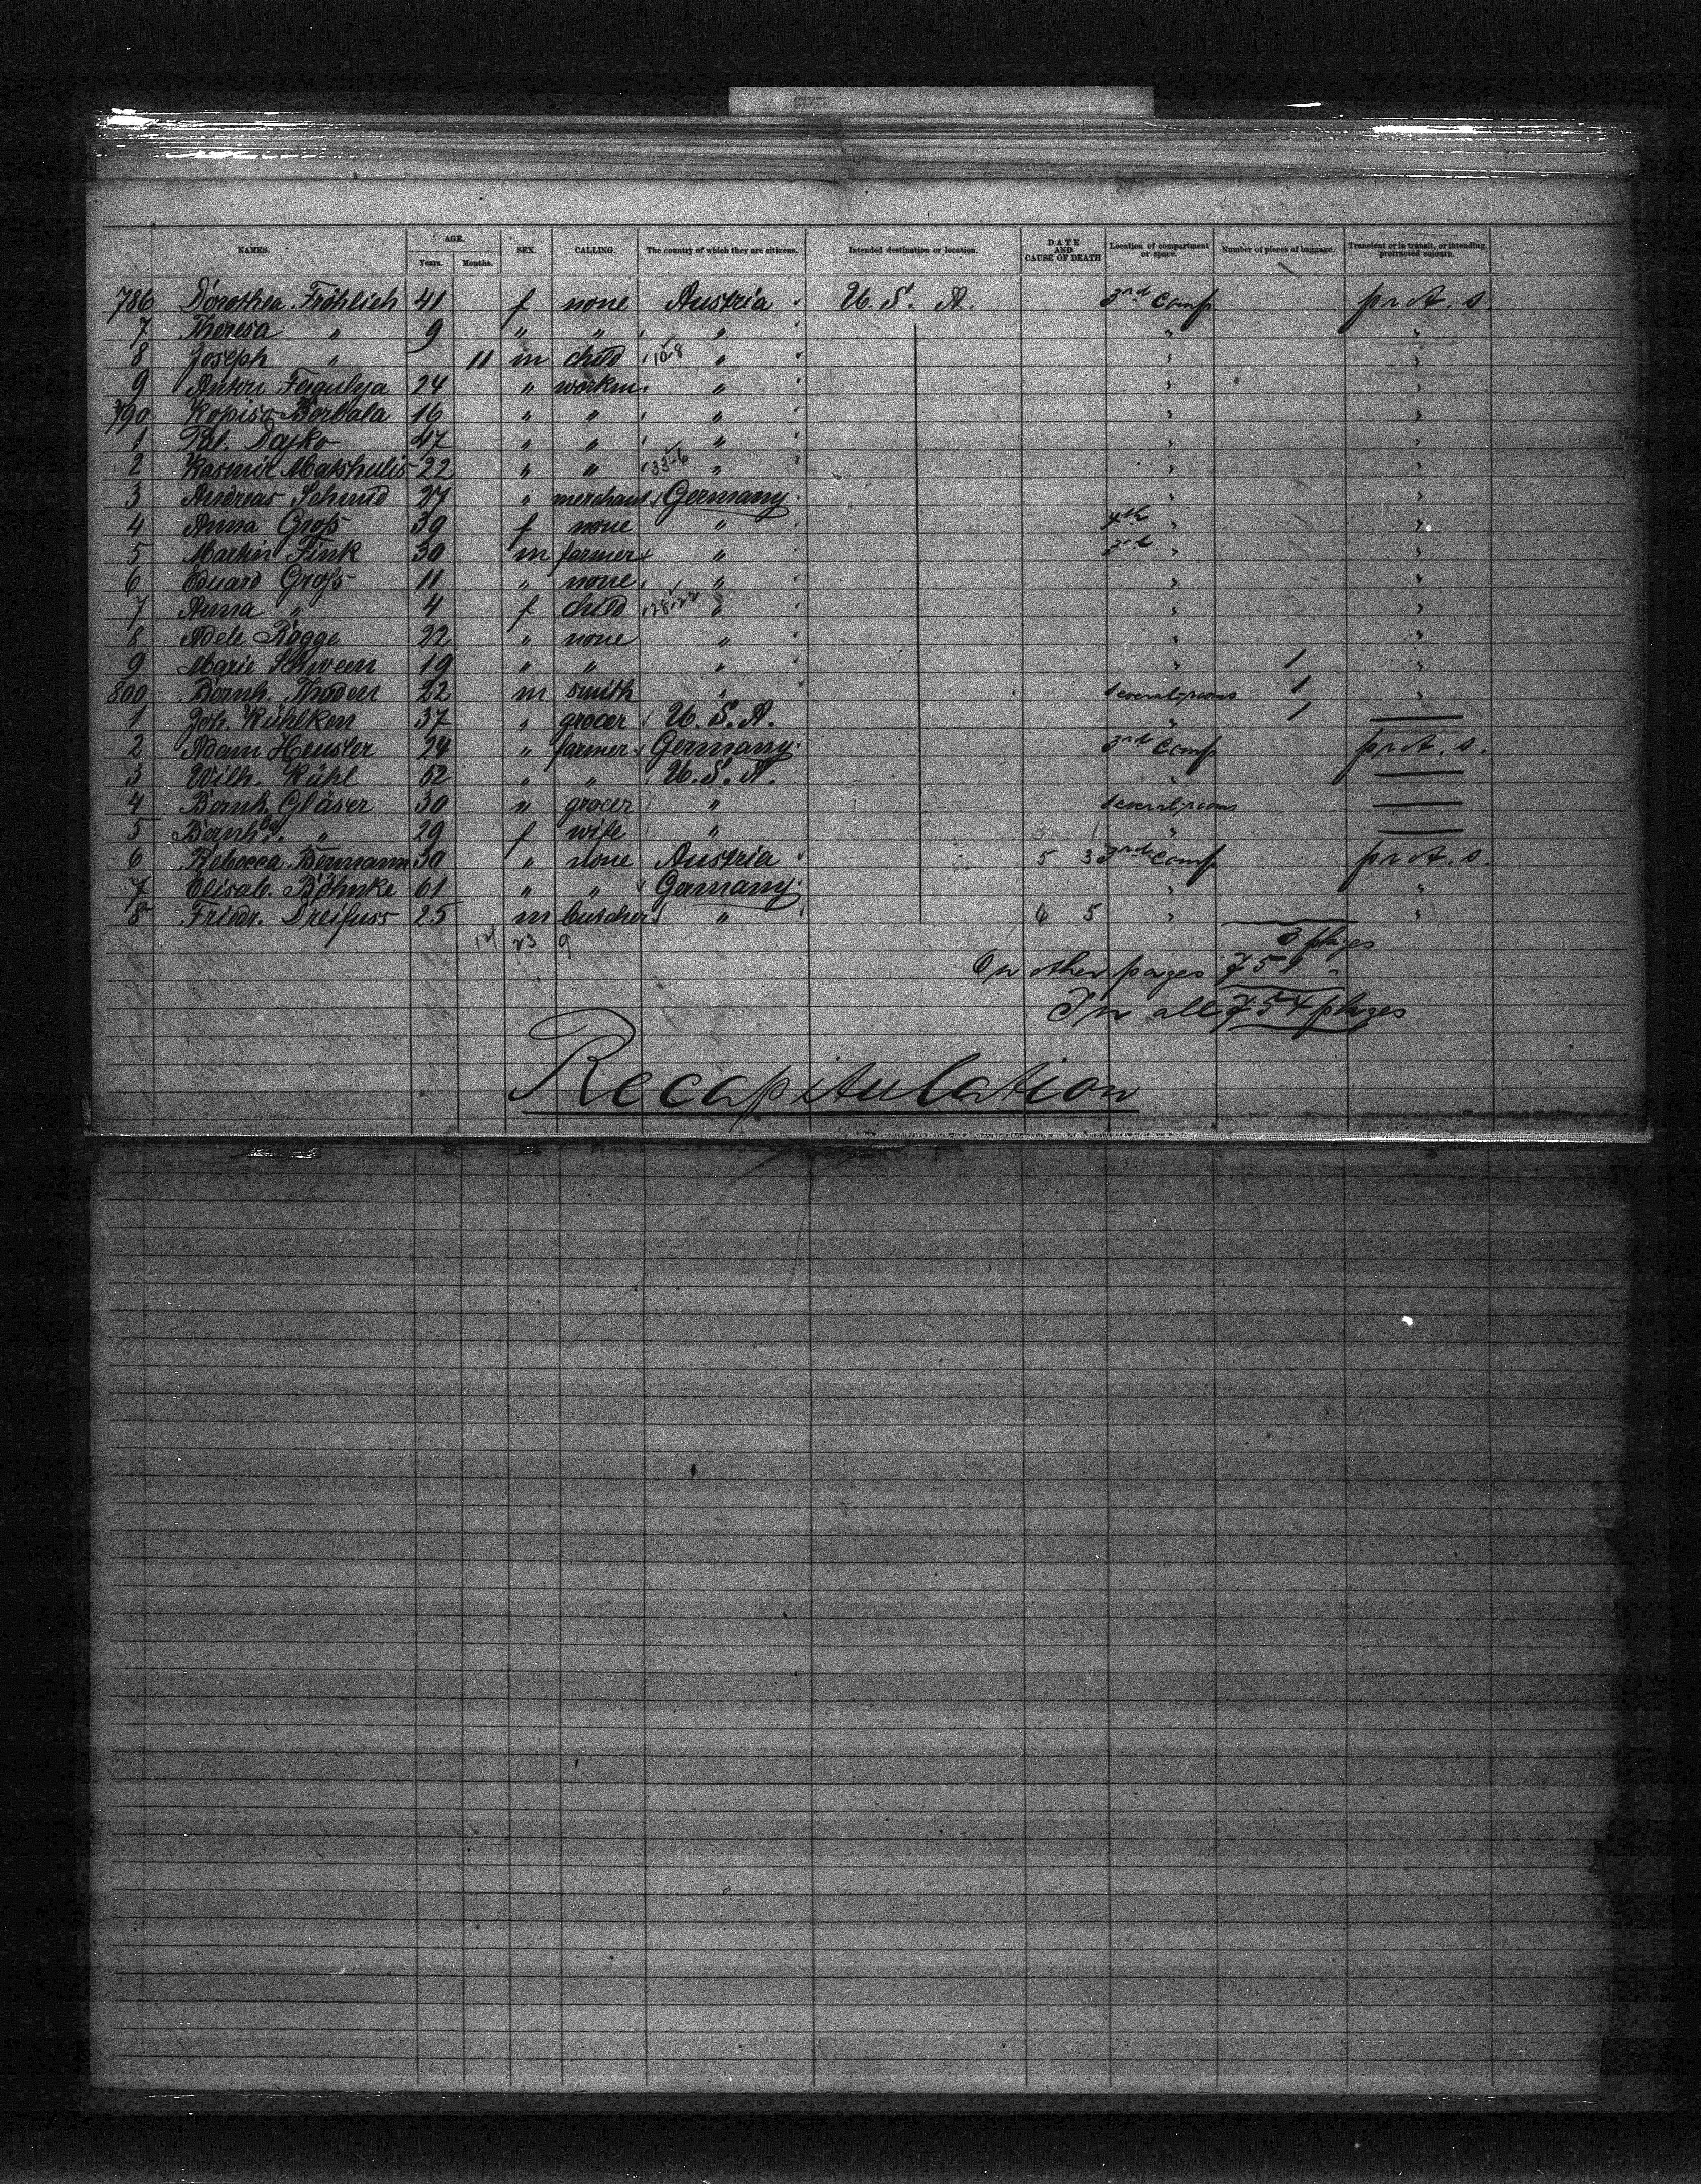 NAMES. AGE. Years. Months. SEX. CALLING. The country of which they are citizens. Intended destination or location. DATE AND CAUSE OF DEATH Location of compartment or space. Number of pieces of baggage. Transient or in transit, or intending protracted sojourn.
786 Dorothea Fröhlich 41 f none Austria U. S. A. 3rd Comp. prot. s.
7 Theresa " 9 " " " " "
8 Joseph " 11 m child 10-8 " " "
9 Anton 24 " workm. " " "
790 Kopisa Borbala 16 " " " " "
1 Pal. Dajko 47 " " " " "
2 Kasmir Matshulis 22 " " 33-6 " " "
3 Andreas Schmid 27 " merchant Germany " "
4 Anna Groß 39 f none " 4th " "
5 Martin Fink 30 m farmer " 3rd " "
6 Eduard Groß 11 " none " " "
7 Anna " 4 f child 28-22 " " "
8 Adele Rogge 22 " none " " "
9 Marie Schween 19 " " " " 1 "
800 Bernh. Thoden 22 m smith " several rooms 1 "
1 Joh. Kühlken 37 " grocer U. S. A. " 1 —
2 Adam Heusler 24 " farmer Germany 3rd Comp prot. s.
3 Wilh. Kühl 52 " " U. S. A. " —
4 Bernh. Gläser 30 " grocer " several rooms —
5 Bernh.d. " 29 f wife " 3 1 " —
6 Rebecca Bermann 30 " none Austria 5 3 3rd Comp prot. s.
7 Elisab. Böhnke 61 " " Germany " "
8 Friedr. Dreifuss 25 m butcher " 6 5 " "
14 23 9 3 pkges
On other pages 751 "
In all 754 pkges
Recapitulation